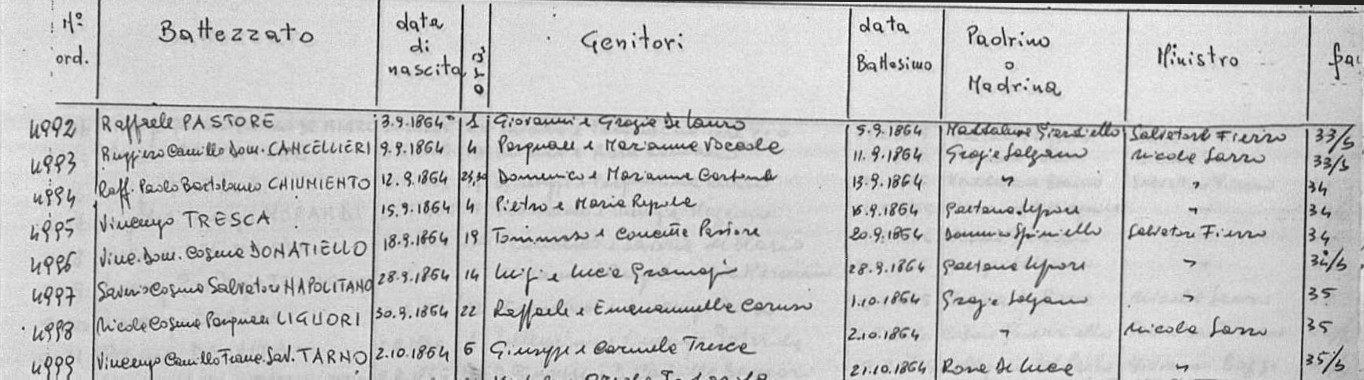 N° ord. Battezzato data di nascita ora Genitori data Battesimo Padrino o Madrina Ministro
4992 Raffaele PASTORE 3.9.1864 1 Giovanni e Grazia De Lauro 5.9.1864 Maddalena Giardiello Salvatore Fierro 33/5
4993 Ruggiero Camillo Dom. CANCELLIERI 9.9.1864 4 Pasquale e Marianna 11.9.1864 Grazia Salzano Nicola Sarro 33/5
4994 Raff. Paolo Bartolomeo CHIUMIENTO 12.9.1864 23,30 Domenico e Marianna 13.9.1864 " " 34
4995 Vincenzo TRESCA 15.9.1864 4 Pietro e Maria 15.9.1864 Gaetana Lepore " 34
4996 Vinc. Dom. Cosma DONATIELLO 18.9.1864 19 Tommaso e Concetta Pastore 20.9.1864 Domenico Salvatore Fierro 34
4997 Saverio Cosimo Salvatore NAPOLITANO 28.9.1864 14 Luigi e Lucia 28.9.1864 Gaetana Lepore " 34/5
4998 Nicola Cosimo Pasquale LIGUORI 30.9.1864 22 Raffaele e Emanuella Caruso 1.10.1864 Grazia Salzano " 35
4999 Vincenzo Camillo Franc. Sav. TARNO 2.10.1864 6 Giuseppe e Carmela Tresca 2.10.1864 " Nicola Sarro 35
21.10.1864 Rosa De Luca " 35/5